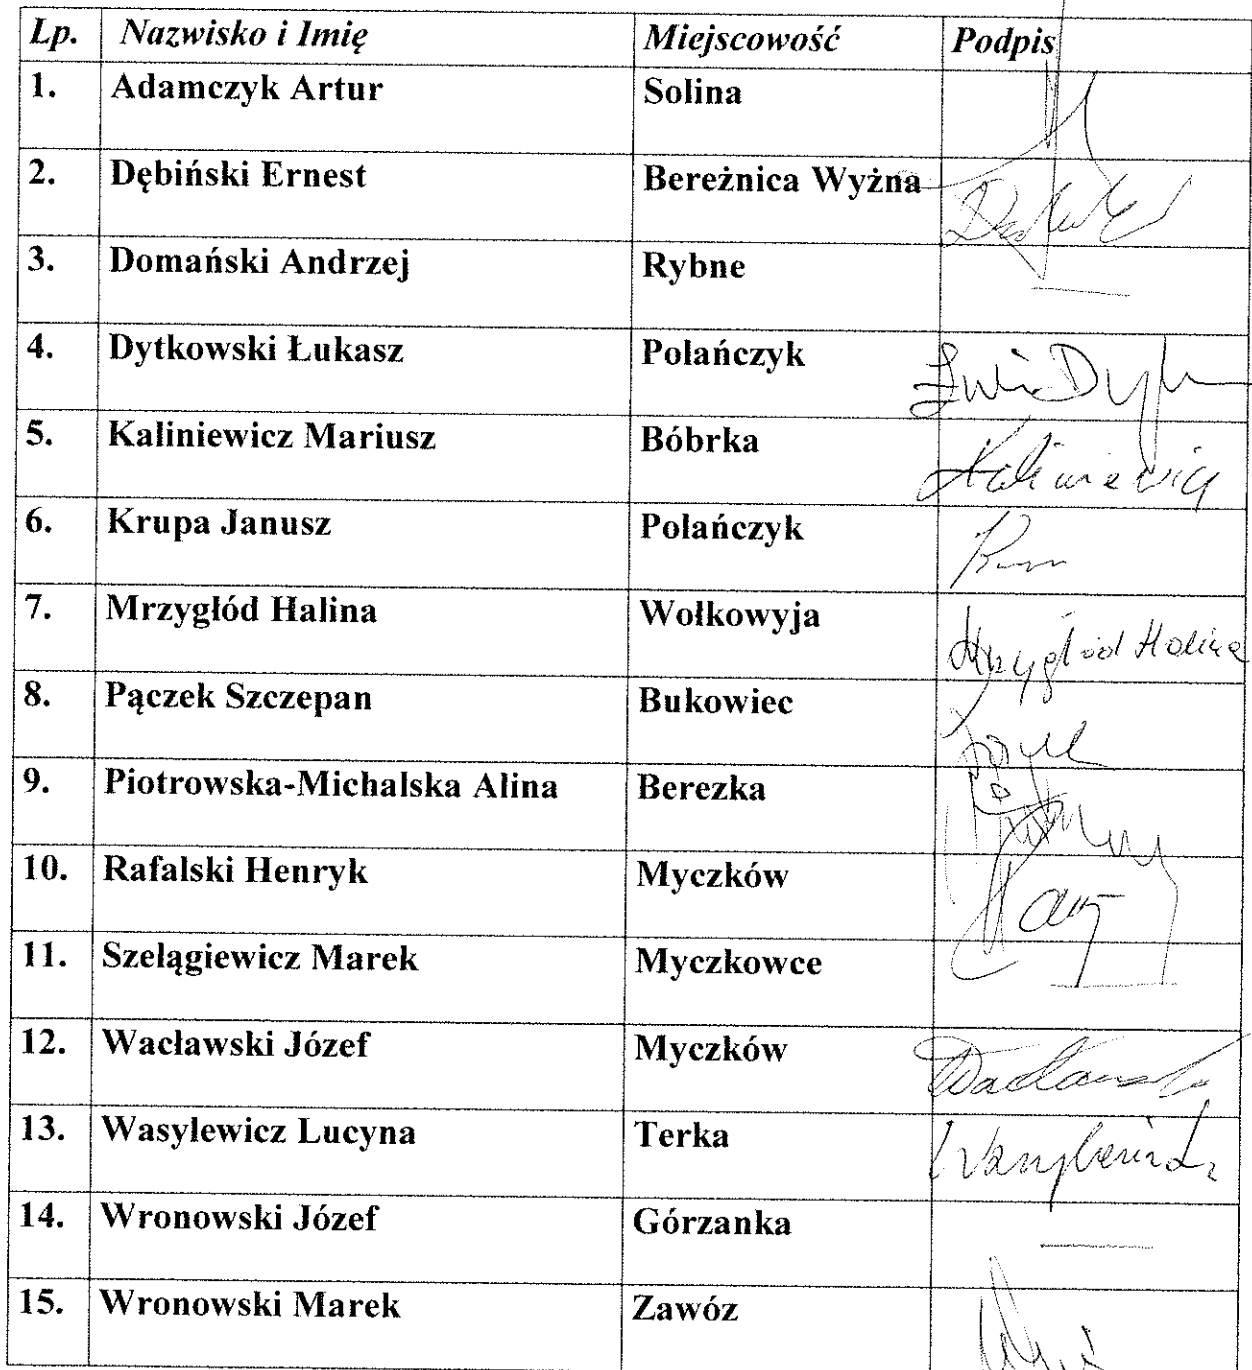 Lp. Nazwisko i Imię Miejscowość Podpis
1. Adamczyk Artur Solina
2. Dębiński Ernest Bereżnica Wyżna
3. Domański Andrzej Rybne
4. Dytkowski Łukasz Polańczyk
5. Kaliniewicz Mariusz Bóbrka Kaliniewicz
6. Krupa Janusz Polańczyk
7. Mrzygłód Halina Wołkowyja Mrzygłód Halina
8. Pączek Szczepan Bukowiec
9. Piotrowska-Michalska Alina Berezka
10. Rafalski Henryk Myczków
11. Szelągiewicz Marek Myczkowce
12. Wacławski Józef Myczków
13. Wasylewicz Lucyna Terka
14. Wronowski Józef Górzanka
15. Wronowski Marek Zawóz